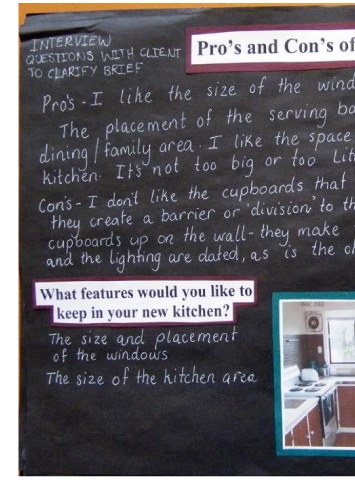 INTERVIEW
QUESTIONS WITH CLIENT
TO CLARIFY BRIEF
Pro's and Con's of
Pro's - I like the size of the wind
The placement of the serving ba
dining/family area. I like the space
kitchen. It's not too big or too Lit
Con's - I don't like the cupboards that
they create a barrier or 'division' to th
cupboards up on the wall - they make
and the lighting are dated, as is the c
What features would you like to
keep in your new kitchen?
The size and placement
of the windows
The size of the kitchen area